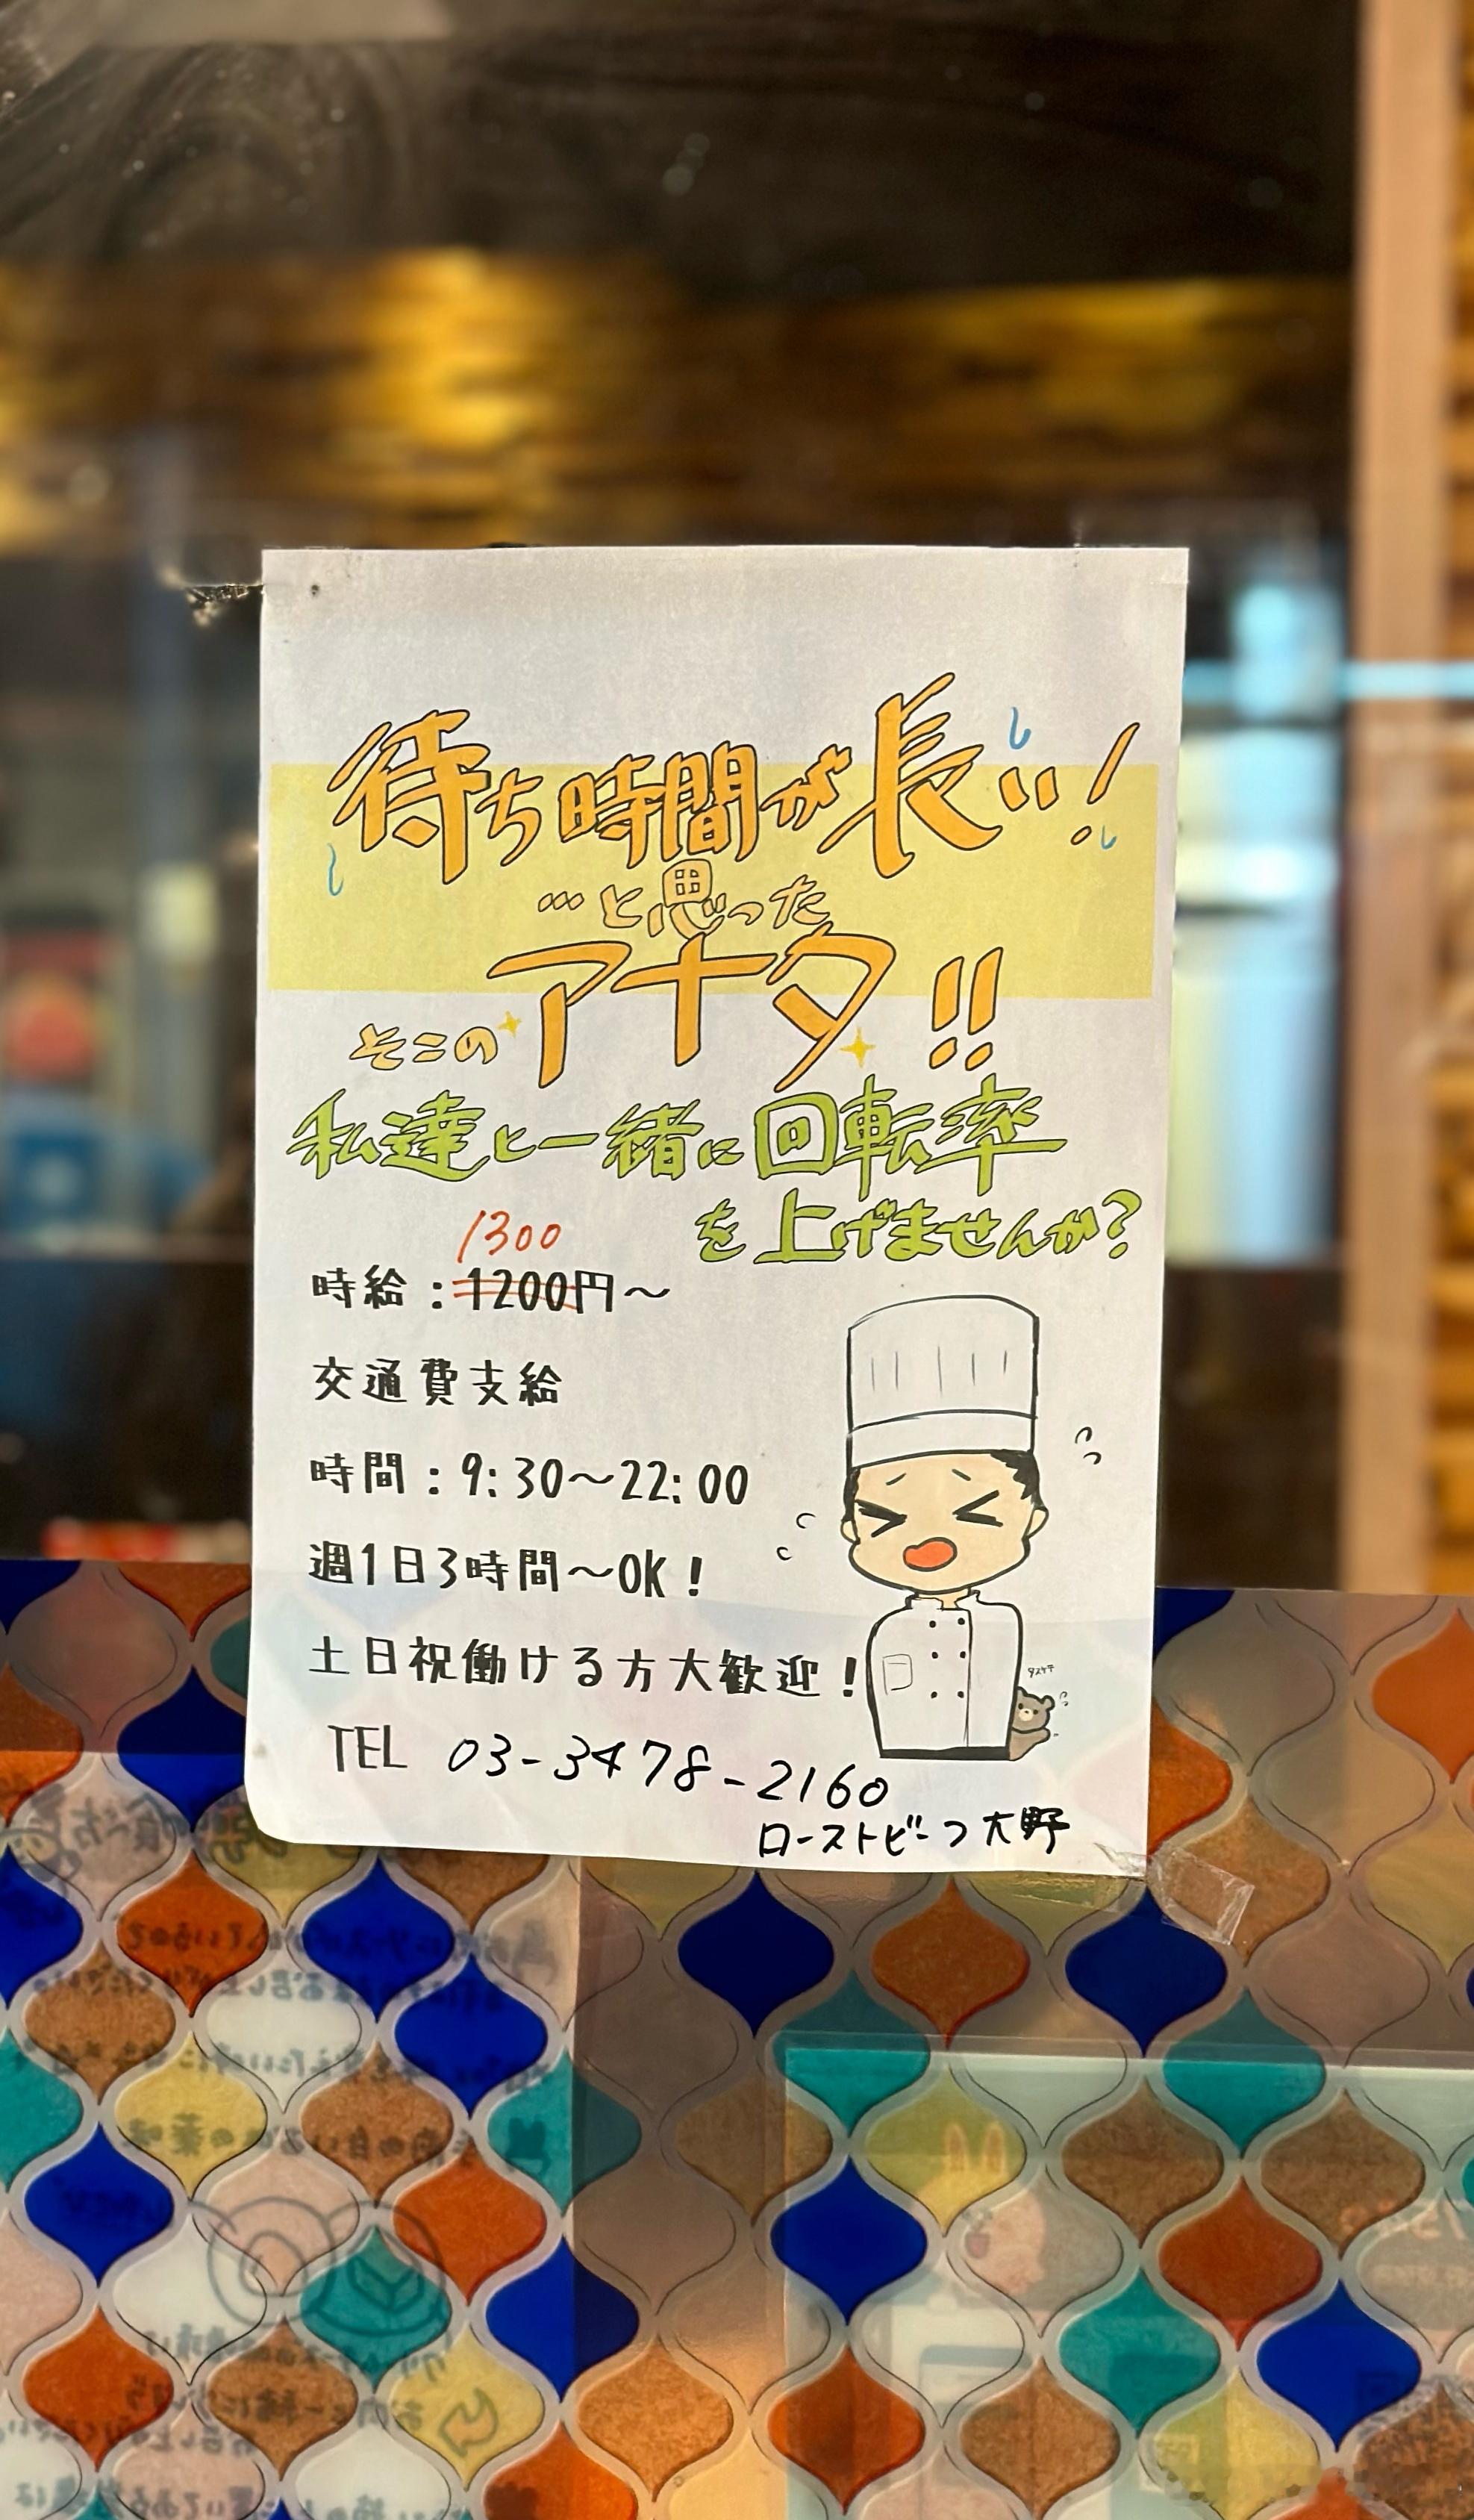 待ち時間が長い!
…と思った
そこのアナタ!!
私達と一緒に回転率
を上げませんか?
1300
時給:1200円~
交通費支給
時間:9:30~22:00
週1日3時間~OK!
土日祝働ける方大歓迎!
タスケテ
TEL 03-3478-2160
ローストビーフ大野